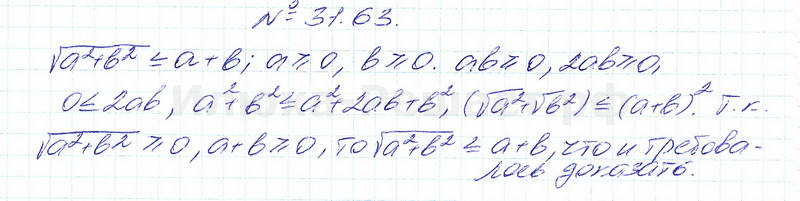 № 31.63.
√a²+b² ≤ a+b; a≥0, b≥0. ab≥0, 2ab≥0,
0≤2ab, a²+b²≤a²+2ab+b², (√a²+√b²)≤(a+b)². Т.к.
√a²+b² ≥0, a+b≥0, то √a²+b² ≤ a+b, что и требова-
лось доказать.